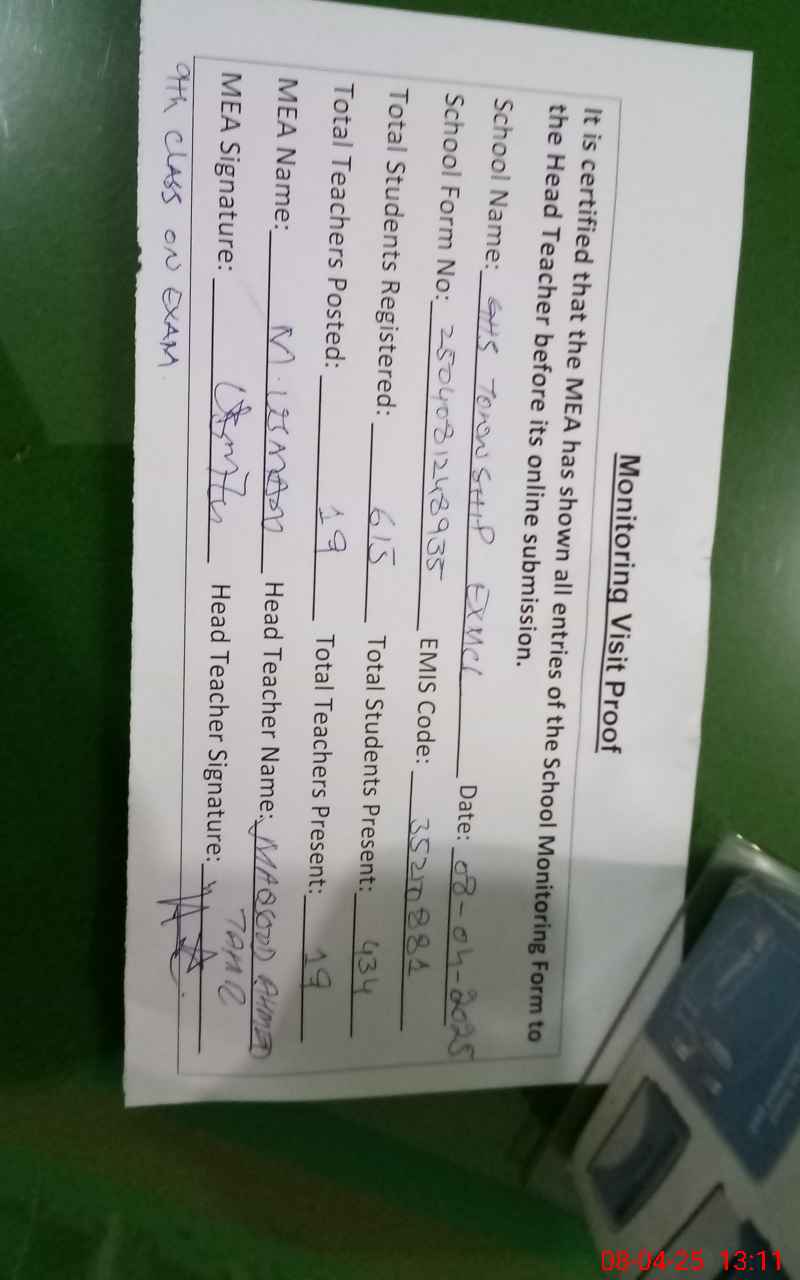 Monitoring Visit Proof
It is certified that the MEA has shown all entries of the School Monitoring Form to
the Head Teacher before its online submission.
School Name: GHS TOWNSHIP EXMCL Date: 08-04-2025
School Form No: 2504081248935 EMIS Code: 35210881
Total Students Registered: 615 Total Students Present: 434
Total Teachers Posted: 19 Total Teachers Present: 19
MEA Name: M. USMAN Head Teacher Name: MAQSOOD AHMED
MEA Signature: Head Teacher Signature:
9th CLASS ON EXAM.
08-04-25 13:11